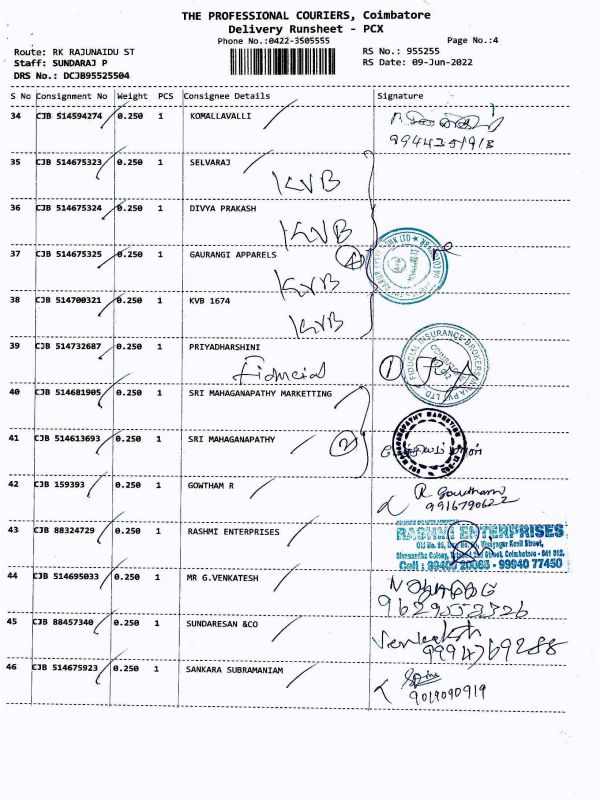 THE PROFESSIONAL COURIERS, Coimbatore
Delivery Runsheet - PCX
Phone No.:0422-3505555
Page No.:4
Route: RK RAJUNAIDU ST
RS No.: 955255
Staff: SUNDARAJ P
RS Date: 09-Jun-2022
DRS No.: DCJB95525504
S No Consignment No Weight PCS Consignee Details Signature
34 CJB 514594274 0.250 1 KOMALLAVALLI
9944351918
35 CJB 514675323 0.250 1 SELVARAJ
KVB
36 CJB 514675324 0.250 1 DIVYA PRAKASH
KVB
37 CJB 514675325 0.250 1 GAURANGI APPARELS
4
KVB
38 CJB 514700321 0.250 1 KVB 1674
KVB
39 CJB 514732687 0.250 1 PRIYADHARSHINI
Fiducial
1
FIDUCIAL INSURANCE BROKERS INDIA PVT LTD
40 CJB 514681905 0.250 1 SRI MAHAGANAPATHY MARKETTING
41 CJB 514613693 0.250 1 SRI MAHAGANAPATHY
2
SRI MAHAGANAPATHY MARKETING
42 CJB 159393 0.250 1 GOWTHAM R
R Gowtham
9916790622
43 CJB 88324729 0.250 1 RASHMI ENTERPRISES
RASHMI ENTERPRISES
Old No. 29, Vinayagar Kovil Street,
Street, Coimbatore - 641 012.
Cell : 99940 20065 - 99940 77450
44 CJB 514695033 0.250 1 MR G.VENKATESH
9629552326
45 CJB 88457340 0.250 1 SUNDARESAN &CO
Venkatesh
9994769288
46 CJB 514675923 0.250 1 SANKARA SUBRAMANIAM
9019090919